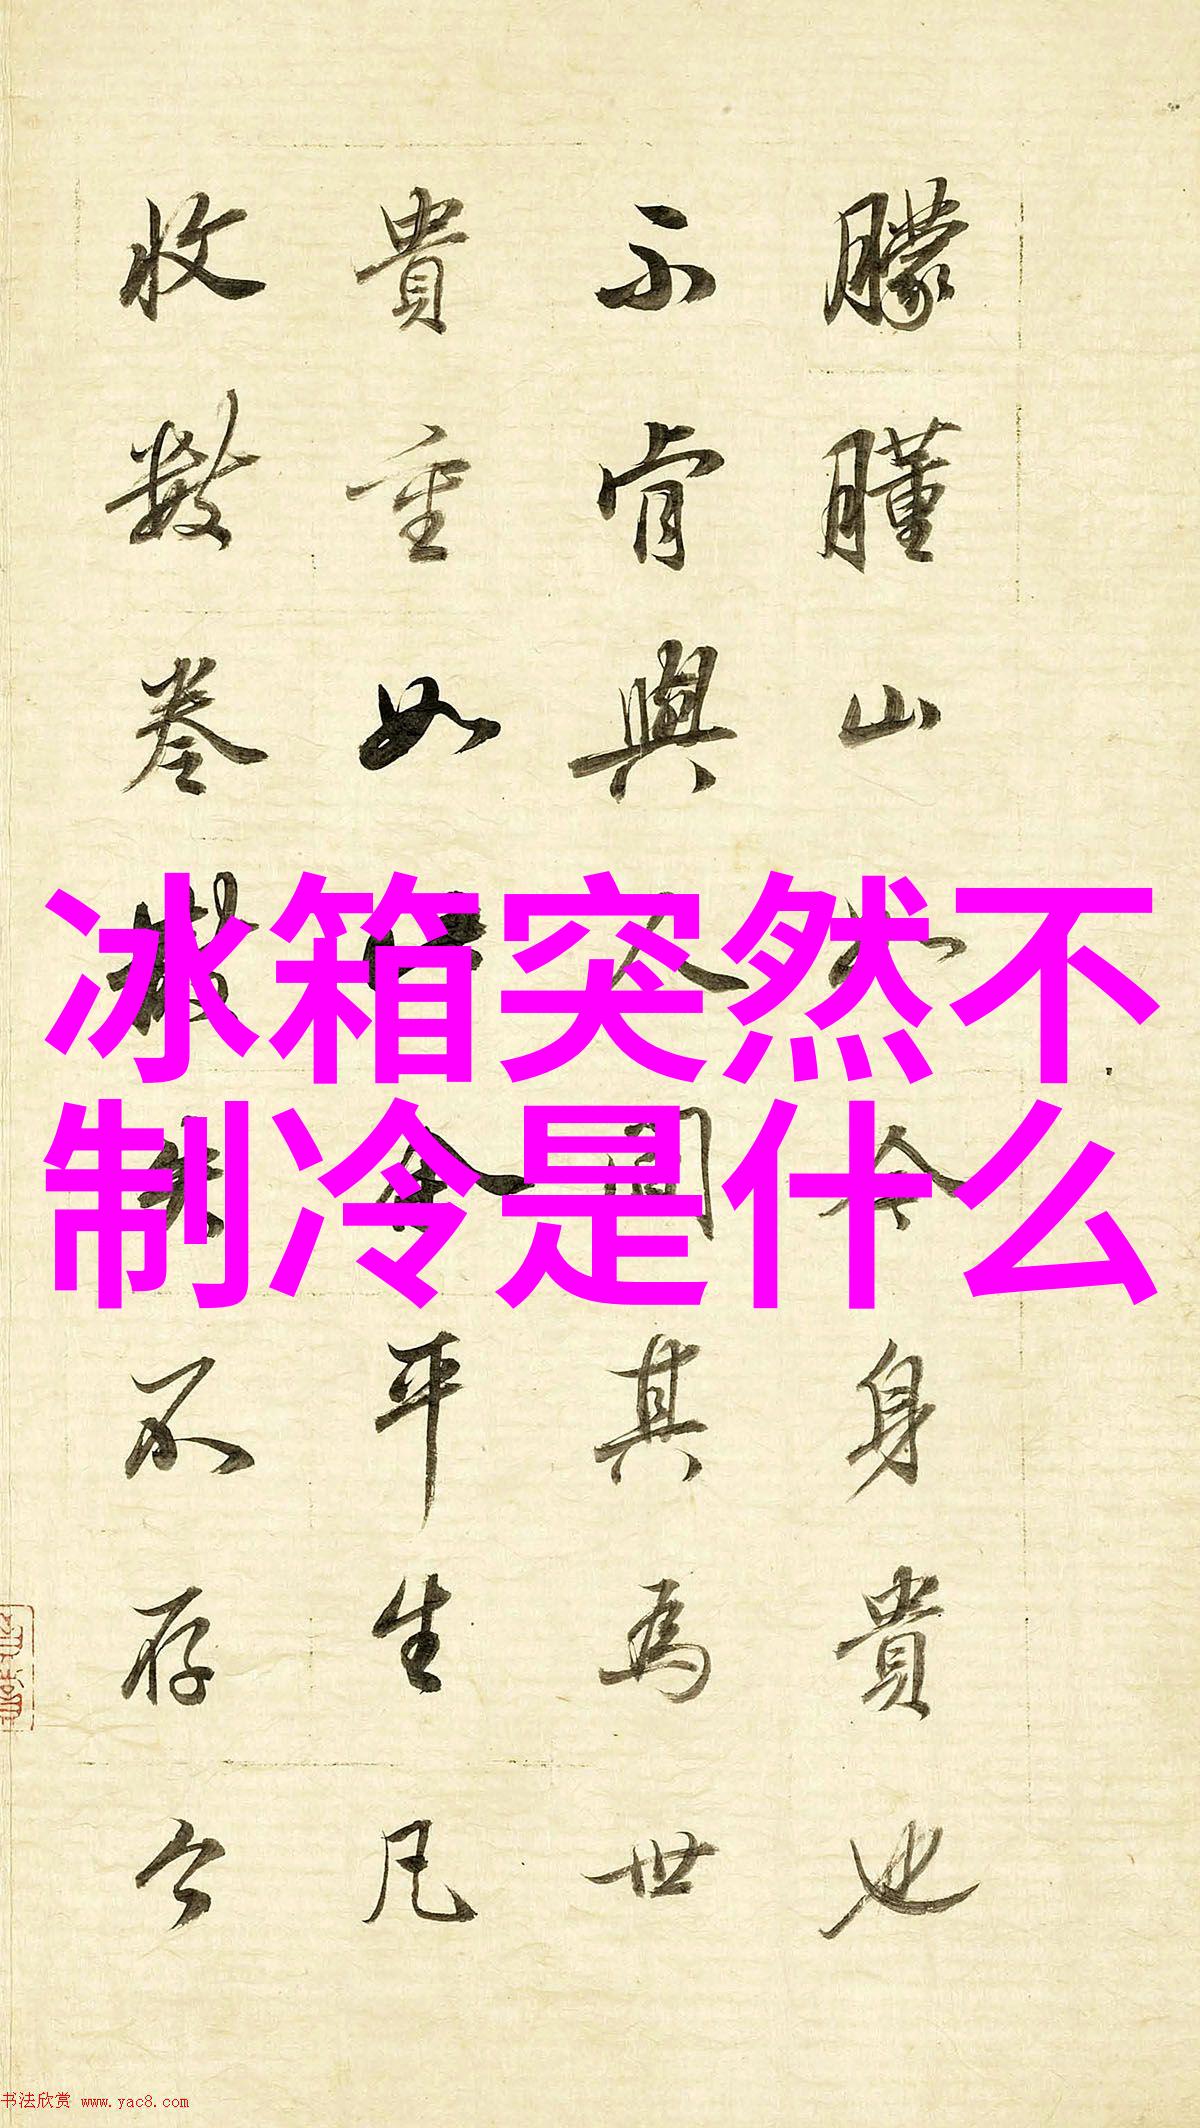 朦膧山
不肯與
其為世
貴重如
平生凡
收數卷
不存今
身貴也
冰箱突然不
制冷是什么
书法欣赏 www.yac8.com